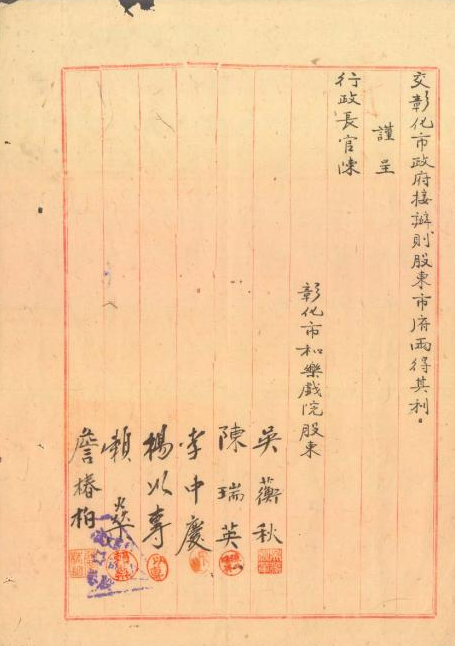 交彰化市政府接辦則股東市府兩得其利。
謹呈
行政長官陳
彰化市和樂戲院股東
吳蘅秋
陳瑞英
李中慶
楊以專
賴燊
詹椿柏